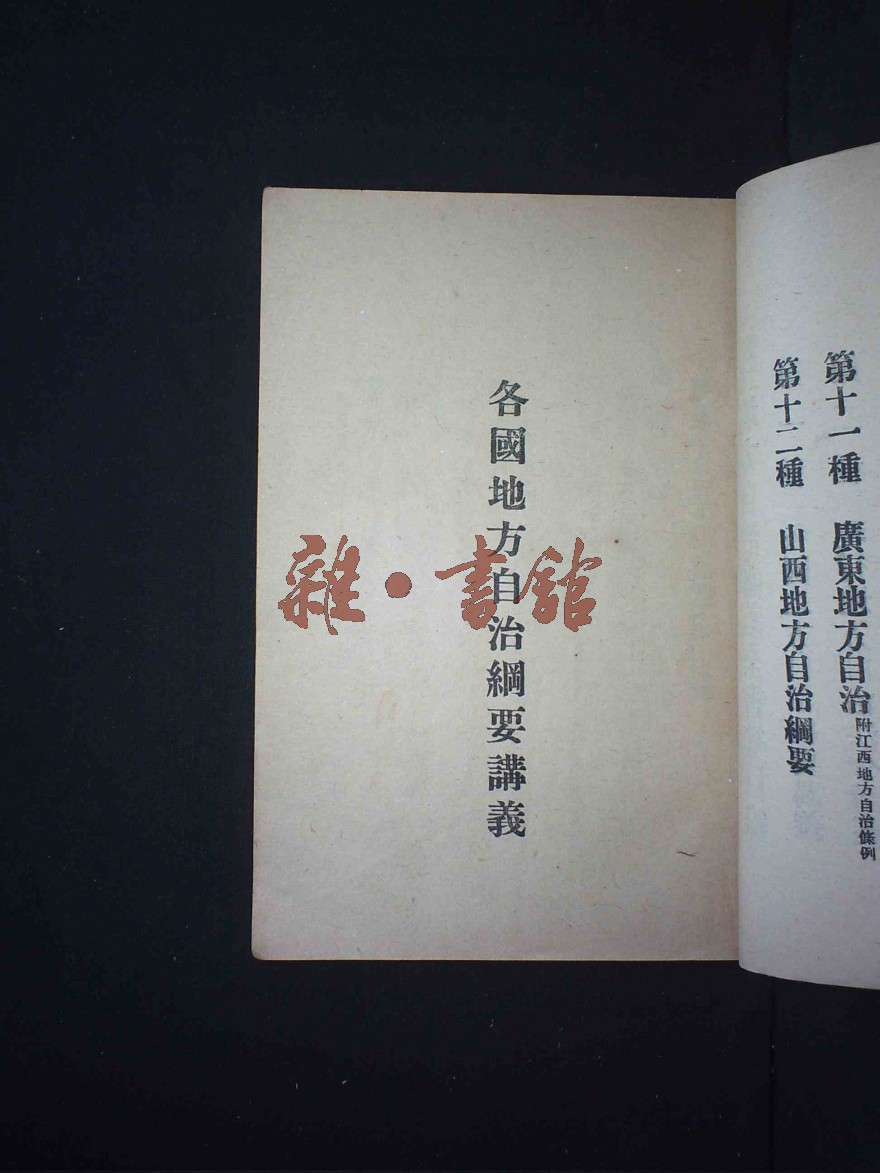 第十一種　廣東地方自治附江西地方自治條例
第十二種　山西地方自治綱要
各國地方自治綱要講義
雜·書館